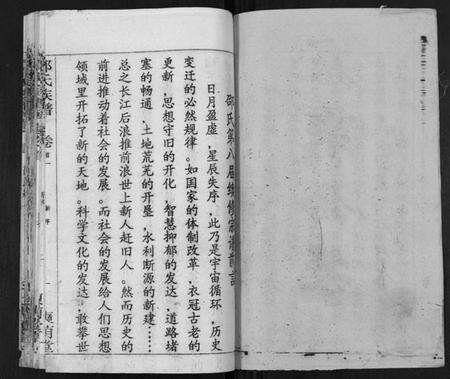 邵氏第八届续修宗谱前言
日月盈虚，星辰失序，此乃是宇宙循环，历史
变迁的必然规律。如国家的体制改革，衣冠古老的
更新，思想守旧的开化，智慧抑郁的发达，道路堵
塞的畅通，土地荒芜的开垦，水利断源的新建……
总之长江后浪推前浪世上新人赶旧人。然而历史的
前进推动着社会的发展。而社会的发展给人们思想
领域里开拓了新的天地。科学文化的发达，敢攀世
邵氏族谱 卷